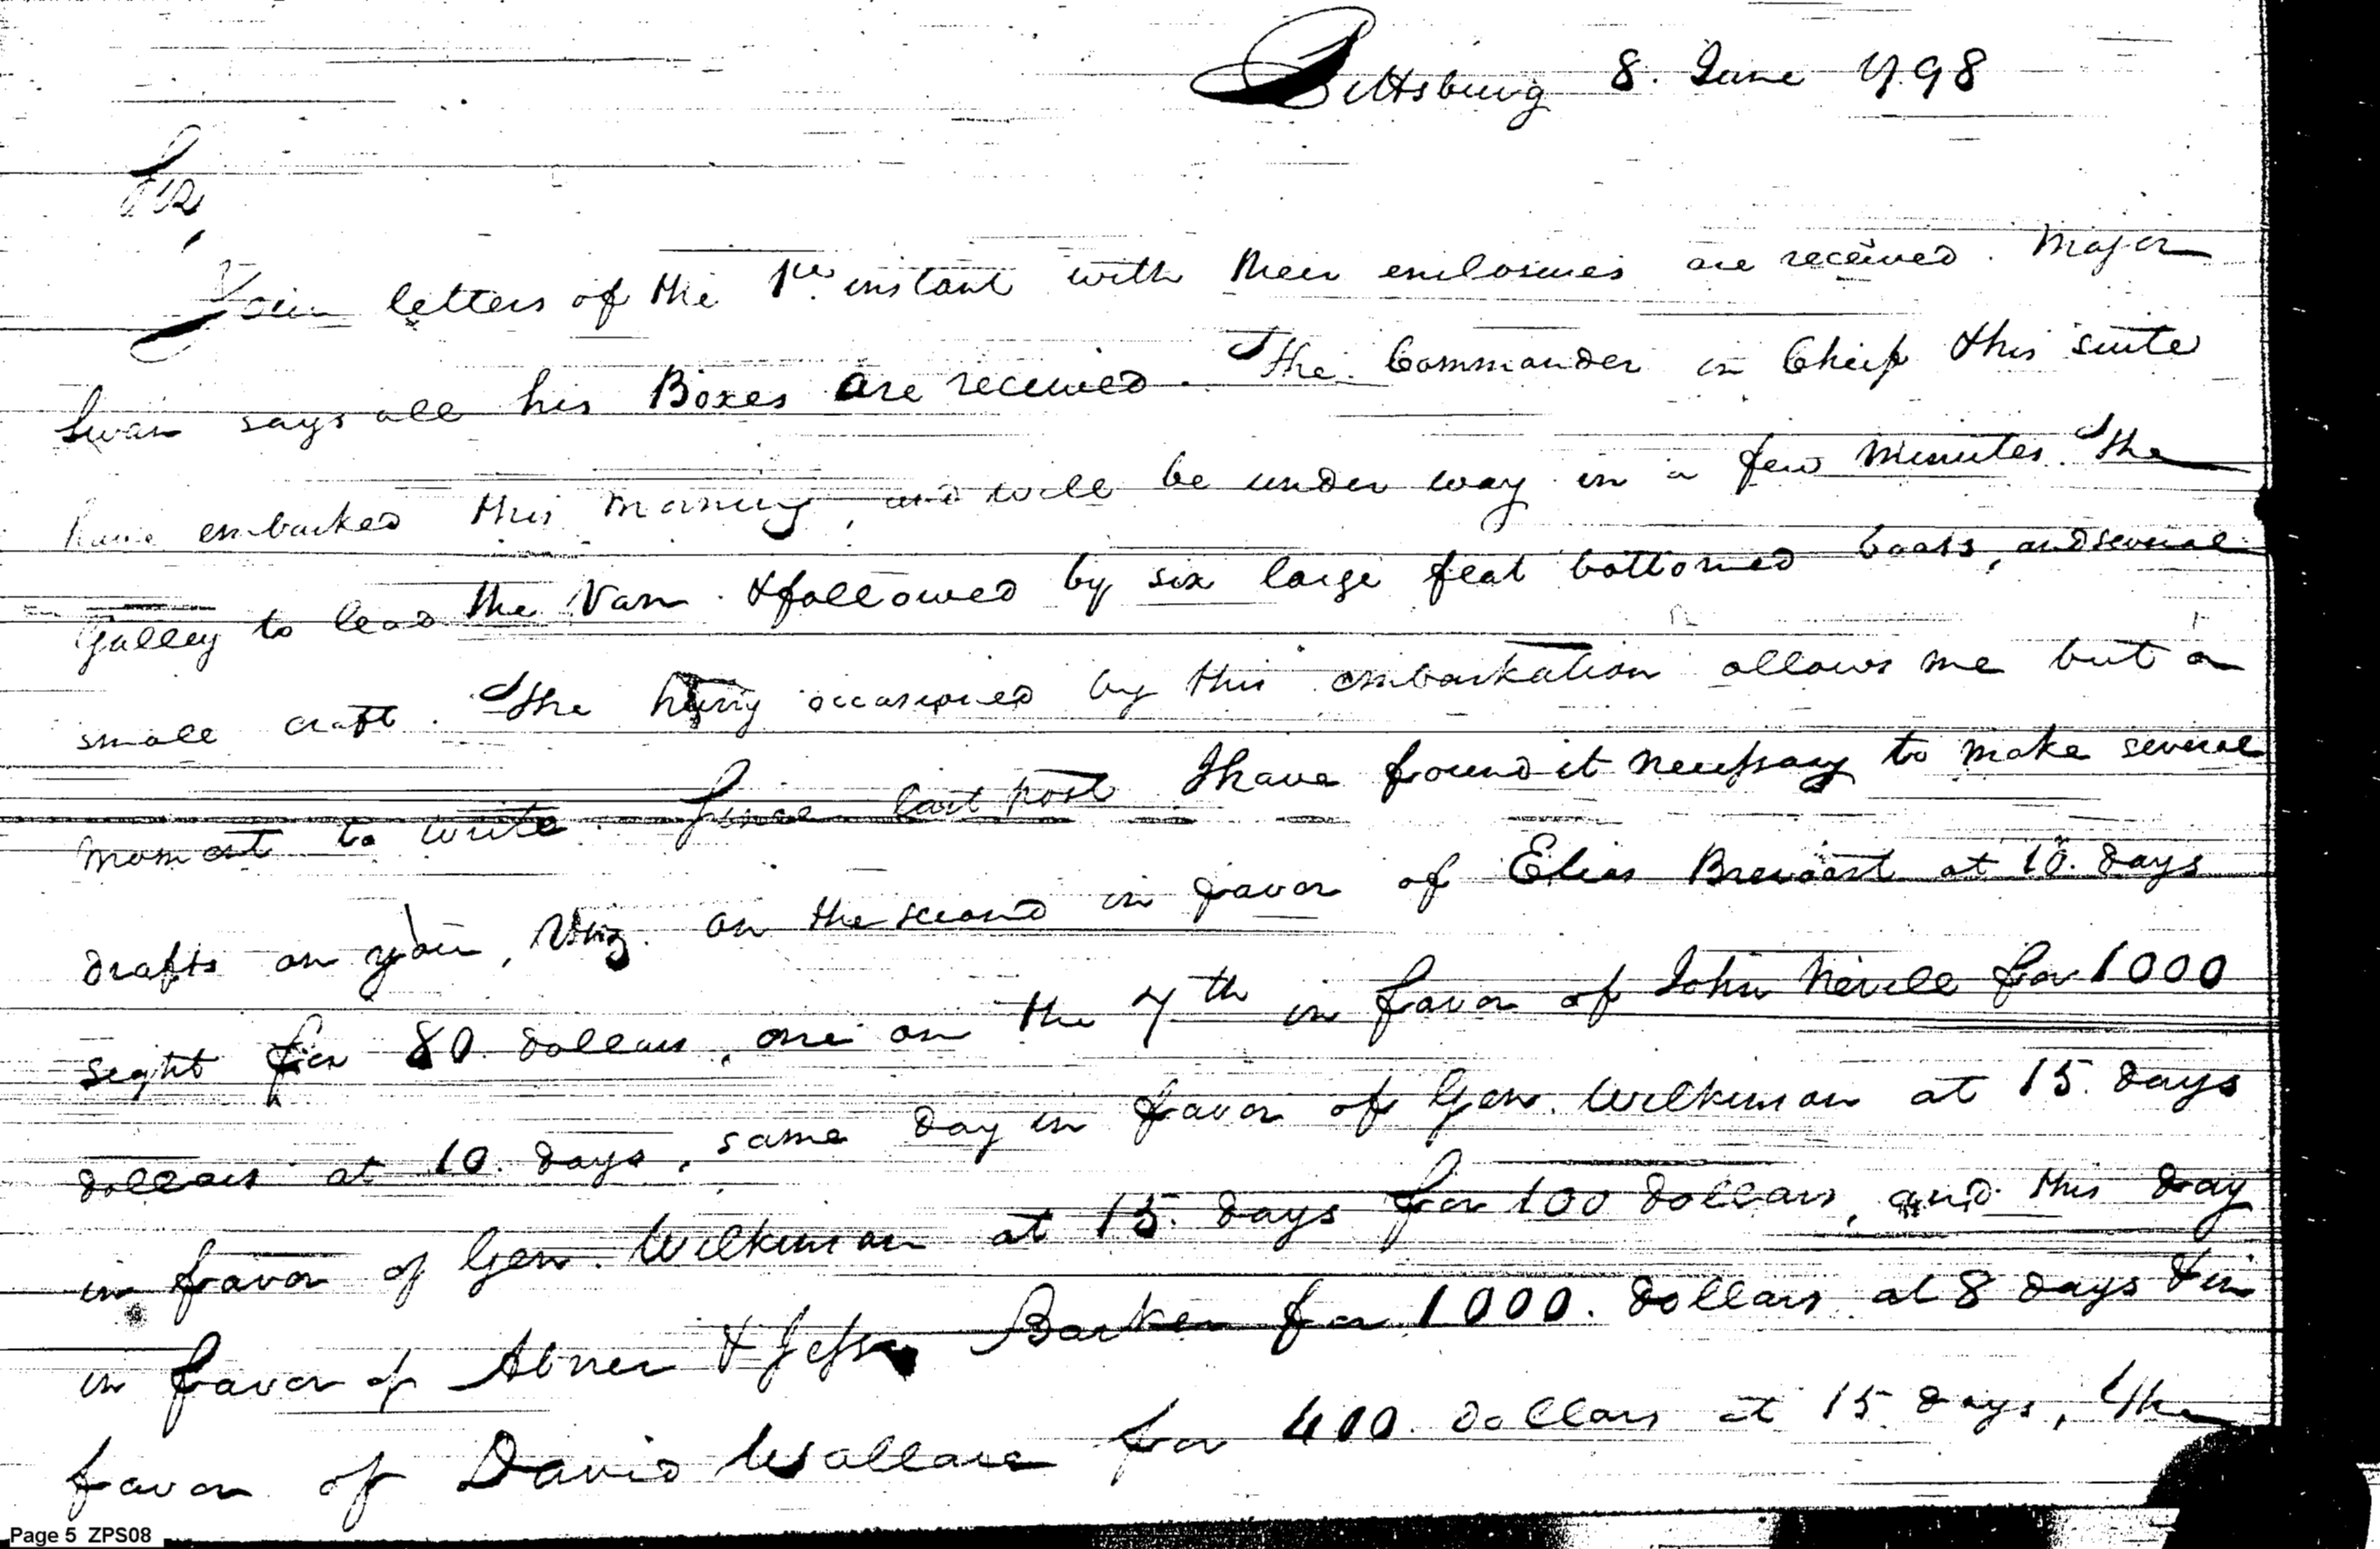 Pittsburg 8. June 1798
Sir,
Your letters of the 1st instant with their enclosures are received. Major
Swan says all his Boxes are received. The Commander in Chief & his suite
have embarked this morning, and will be under way in a few minutes. The
Galley to lead the Van. & followed by six large flat bottomed boats, and several
small craft. The hurry occasioned by this embarkation allows me but a
moment to write. Since last post I have found it necessary to make several
drafts on you, Viz. on the second in favor of Elias Brevoort at 10. days
sight for 80. dollars, one on the 7th in favor of John Nevill for 1000
dollars at 10. days, same day in favor of Gen. Wilkinson at 15. days
in favor of Gen. Wilkinson at 15. days for 100 dollars, and this day
in favor of Abner & Jesse Barker for 1000. dollars at 8 days & in
favor of David Wallace for 400. dollars at 15 days, The
Page 5 ZPS08